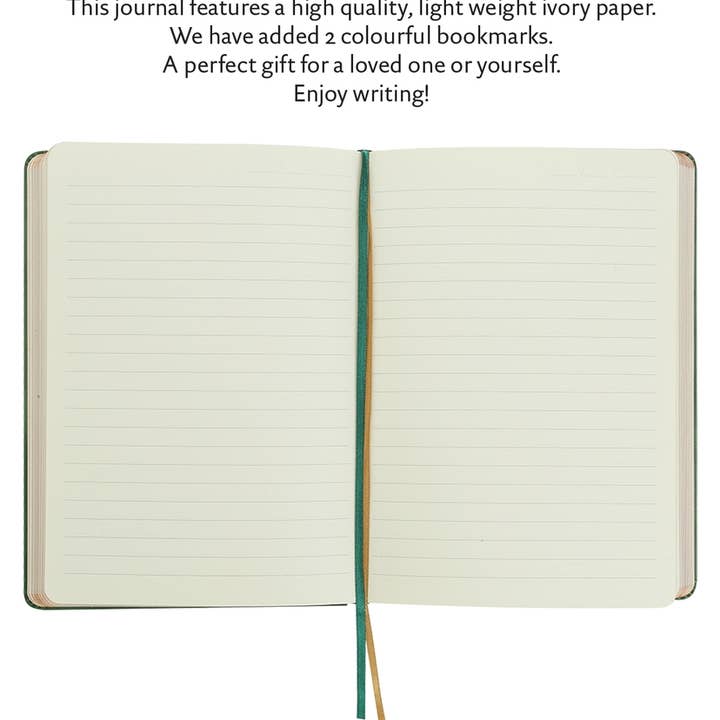 This journal features a high quality, light weight ivory paper.
We have added 2 colourful bookmarks.
A perfect gift for a loved one or yourself.
Enjoy writing!